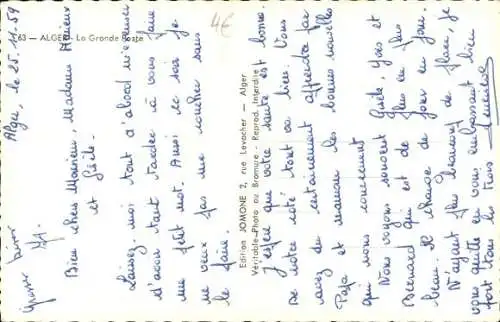 63 — ALGER - La Grande Poste
4€
Alger, le 25.11.59
Bien chers Monsieur, Madame
et
Gisèle.
Laissez-moi tout d'abord m'excuser
d'avoir tant tardé à vous faire
un petit mot. Aussi ce soir je
ne veux pas me coucher sans
le faire.
Edition JOMONE 2, rue Levacher — Alger
Véritable-Photo au Bromure - Reprod. Interdite
J'espère que votre santé est bonne.
De notre côté tout va bien. Vous
avez du certainement apprendre par
Papa et maman les bonnes nouvelles
qui nous concernent.
Nous voyons souvent Gisèle, Yves et
Bernard qui est de plus en plus
beau. Il change de jour en jour.
N'ayant plus beaucoup de place, je
vous quitte en vous embrassant bien
fort tous les trois